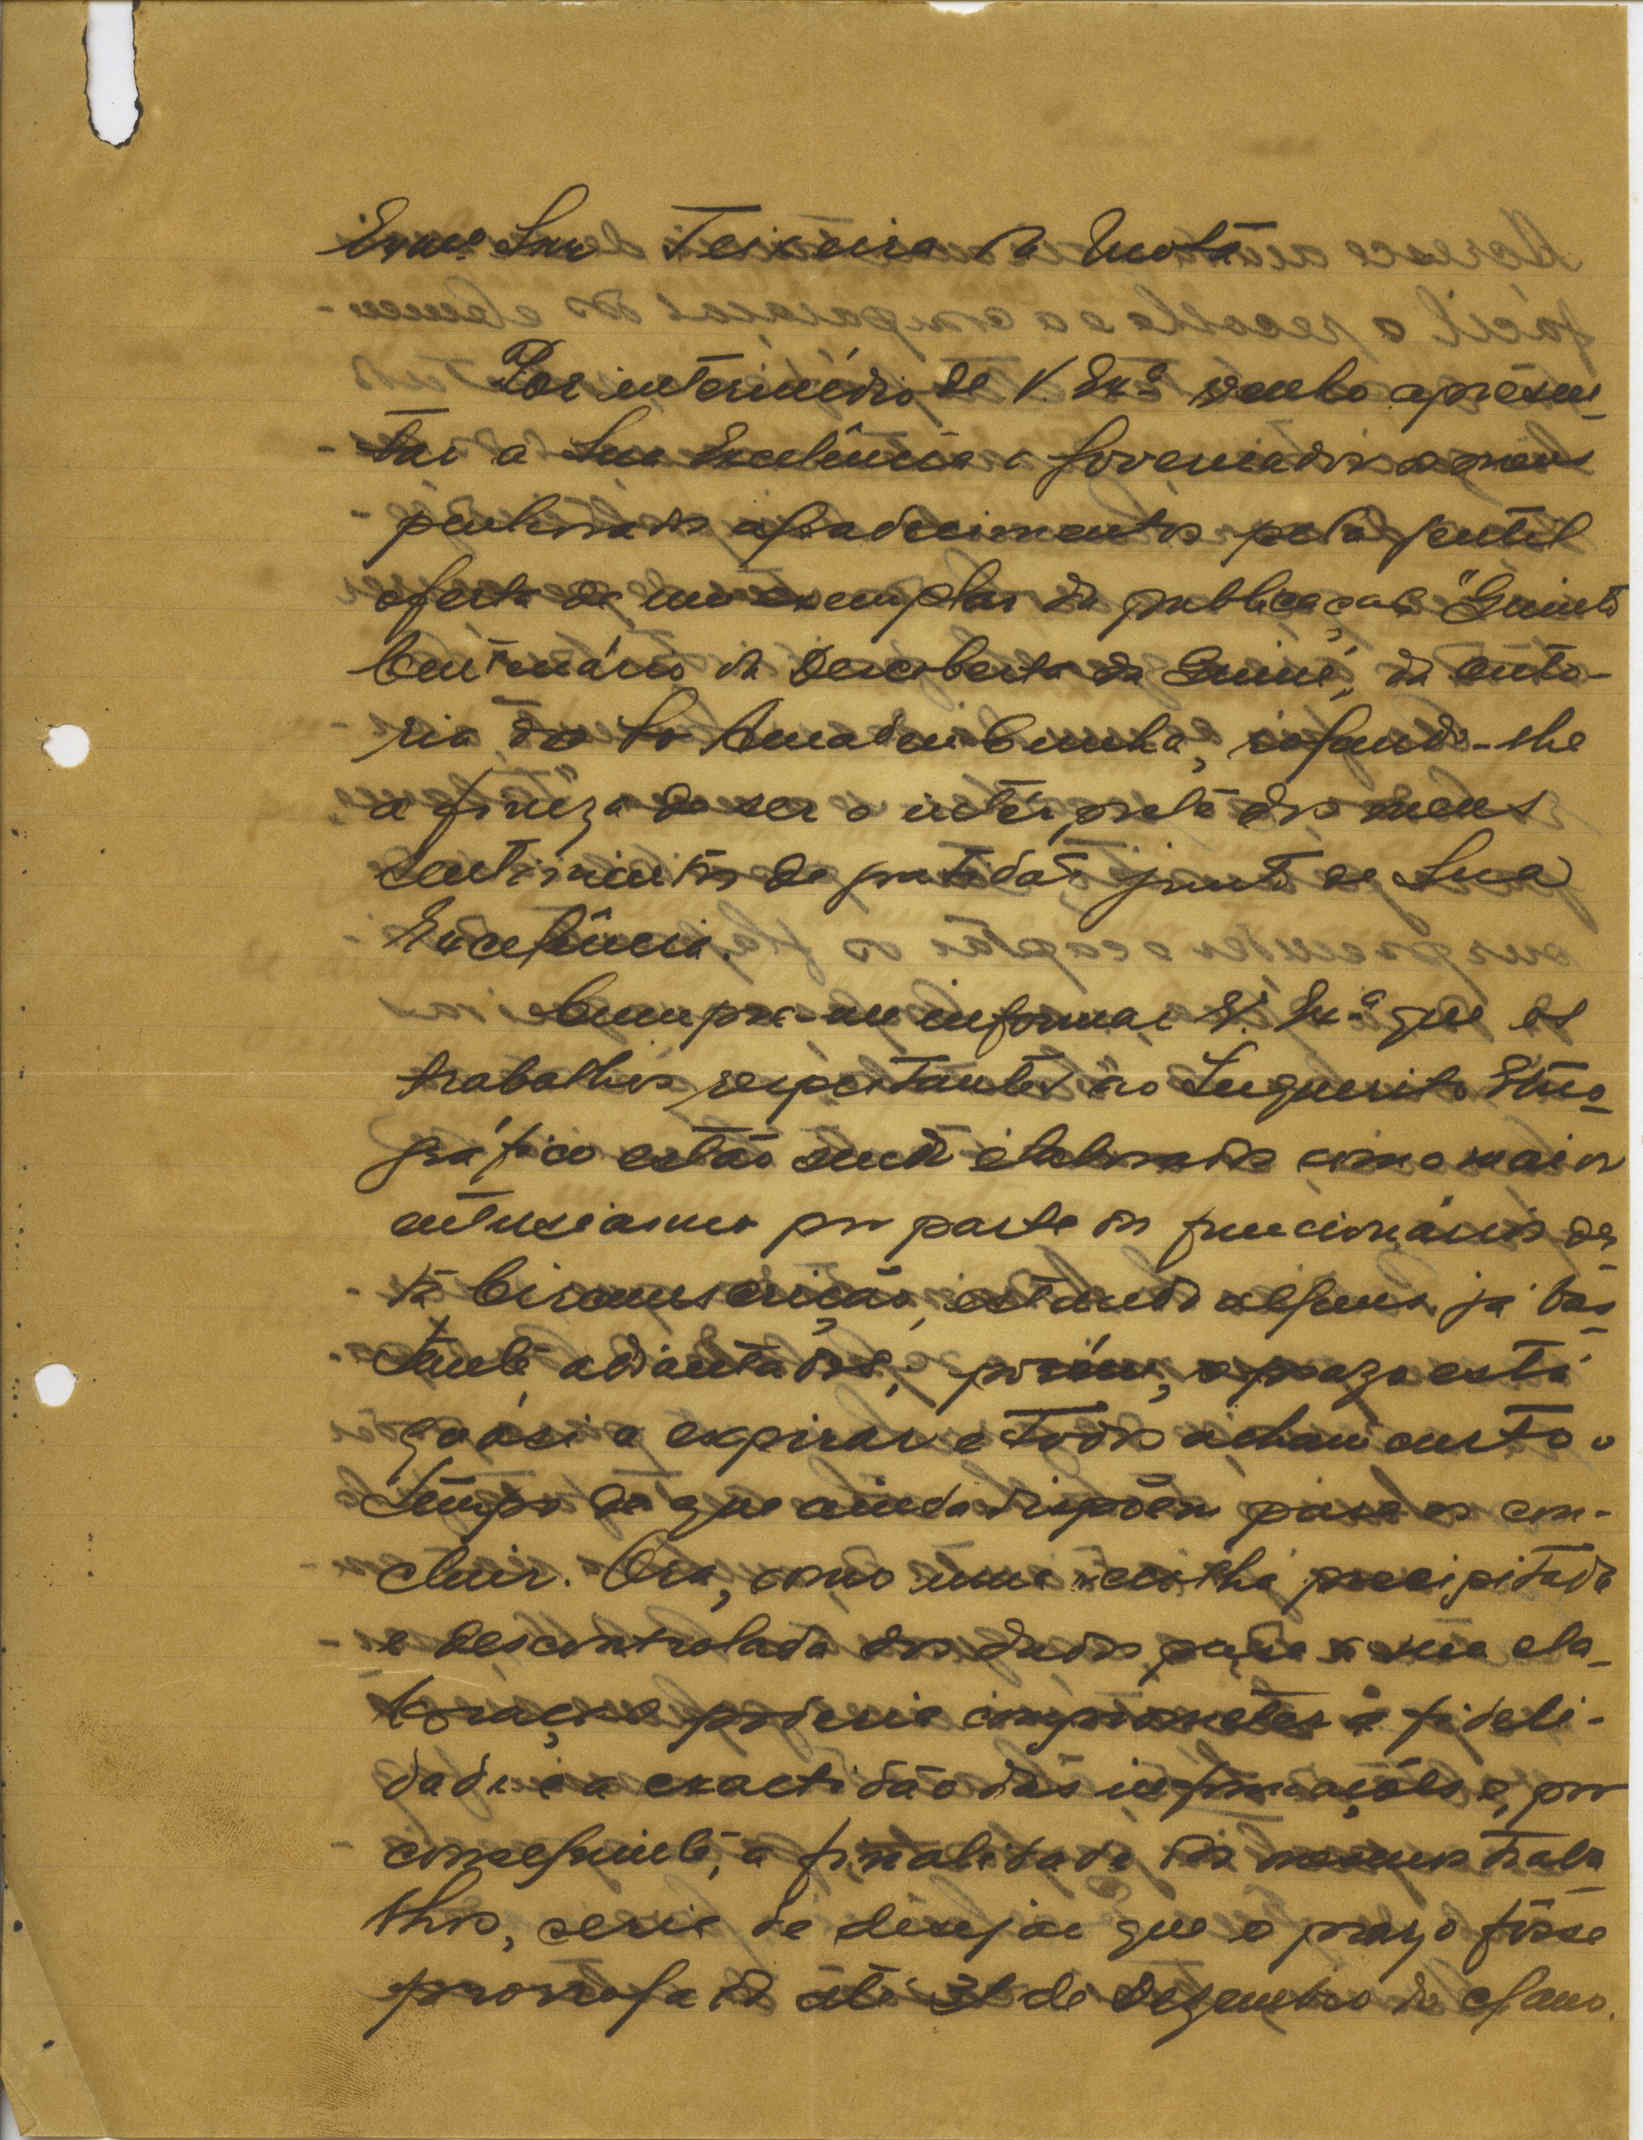 Exmo. Snr. Teixeira da Mota
Por intermédio de V. Exª venho apresen-
tar a Sua Excelência o Governador os meus
penhorados agradecimentos pela gentil
oferta de um exemplar da publicação "Quinto
Centenário da Descoberta da Guiné", da auto-
ria do Sr. Amadeu Cunha, rogando-lhe
a fineza de ser o intérprete dos meus
sentimentos de gratidão junto de Sua
Excelência.
Cumpre-me informar V. Exª que os
trabalhos respeitantes ao Inquerito Etno-
gráfico estão sendo elaborados com o maior
entusiasmo por parte dos funcionários des
ta Circunscrição, estando alguns já bas-
tante adiantados; porém, o prazo está
quási a expirar e todos acham curto o
tempo de que ainda dispõem para os con-
cluir. Ora, como uma recolha precipitada
e descontrolada dos dados para a sua ela-
boração poderia comprometer a fideli-
dade e a exactidão das informações e, por
conseguinte, a finalidade dos mesmos traba
lhos, seria de desejar que o prazo fôsse
prorrogado até 31 de Dezembro do c/ano.